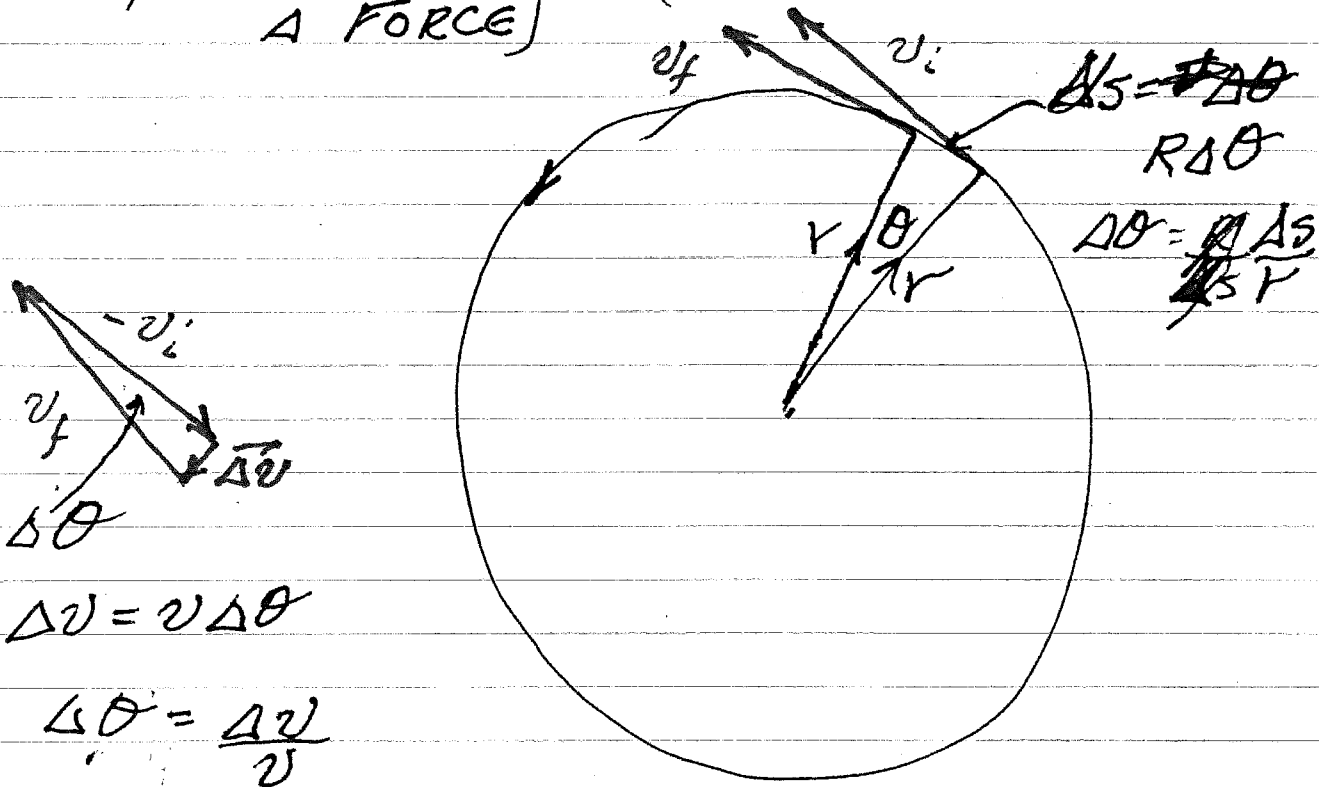 A FORCE]
v_f
v_i
Δs = rΔθ
RΔθ
Δθ = Δs/r
r
θ
r
-v_i
v_f
Δv
Δθ
Δv = vΔθ
Δθ = Δv/v